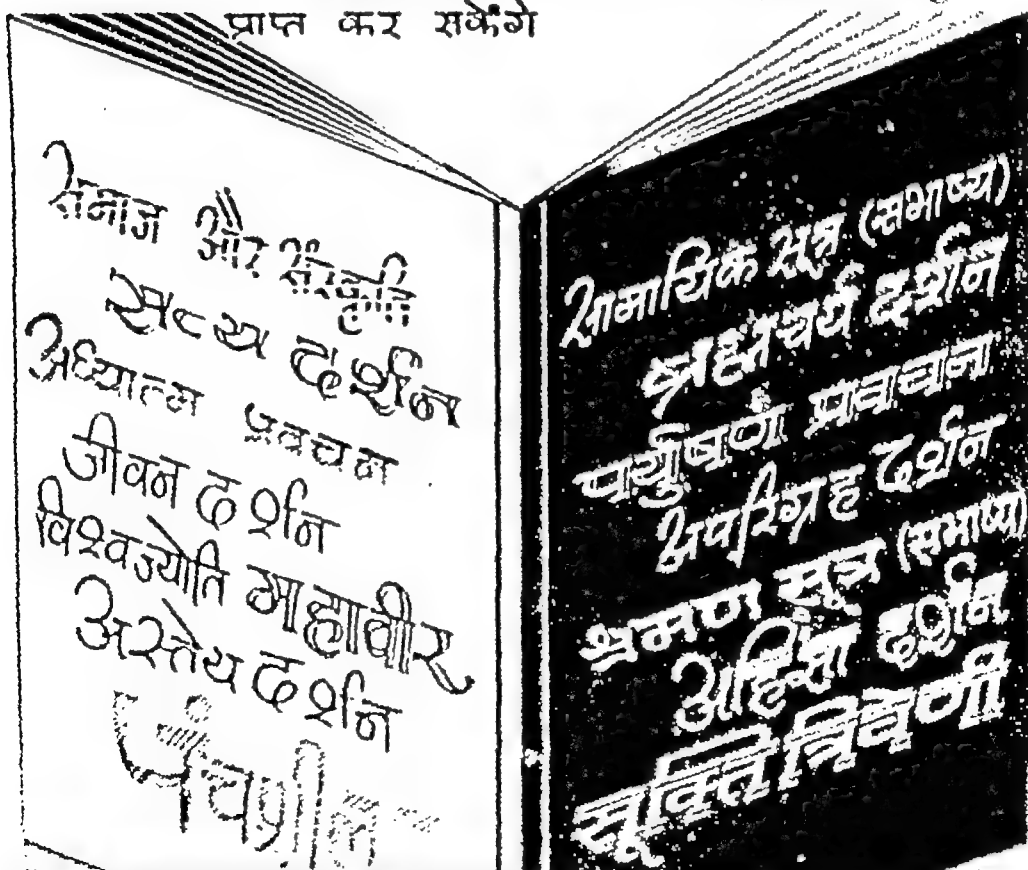 प्राप्त कर सकेंगे
समाज और संस्कृति
सत्य दर्शन
अध्यात्म प्रवचन
जीवन दर्शन
विश्वज्योति माहावीर
अस्तेय दर्शन
पंचशील
सामायिक सूत्र (सभाष्य)
ब्रह्मचर्य दर्शन
पर्युषण प्रवचन
अपरिग्रह दर्शन
श्रमण सूत्र (सभाष्य)
अहिंसा दर्शन
सूक्ति त्रिवेणी